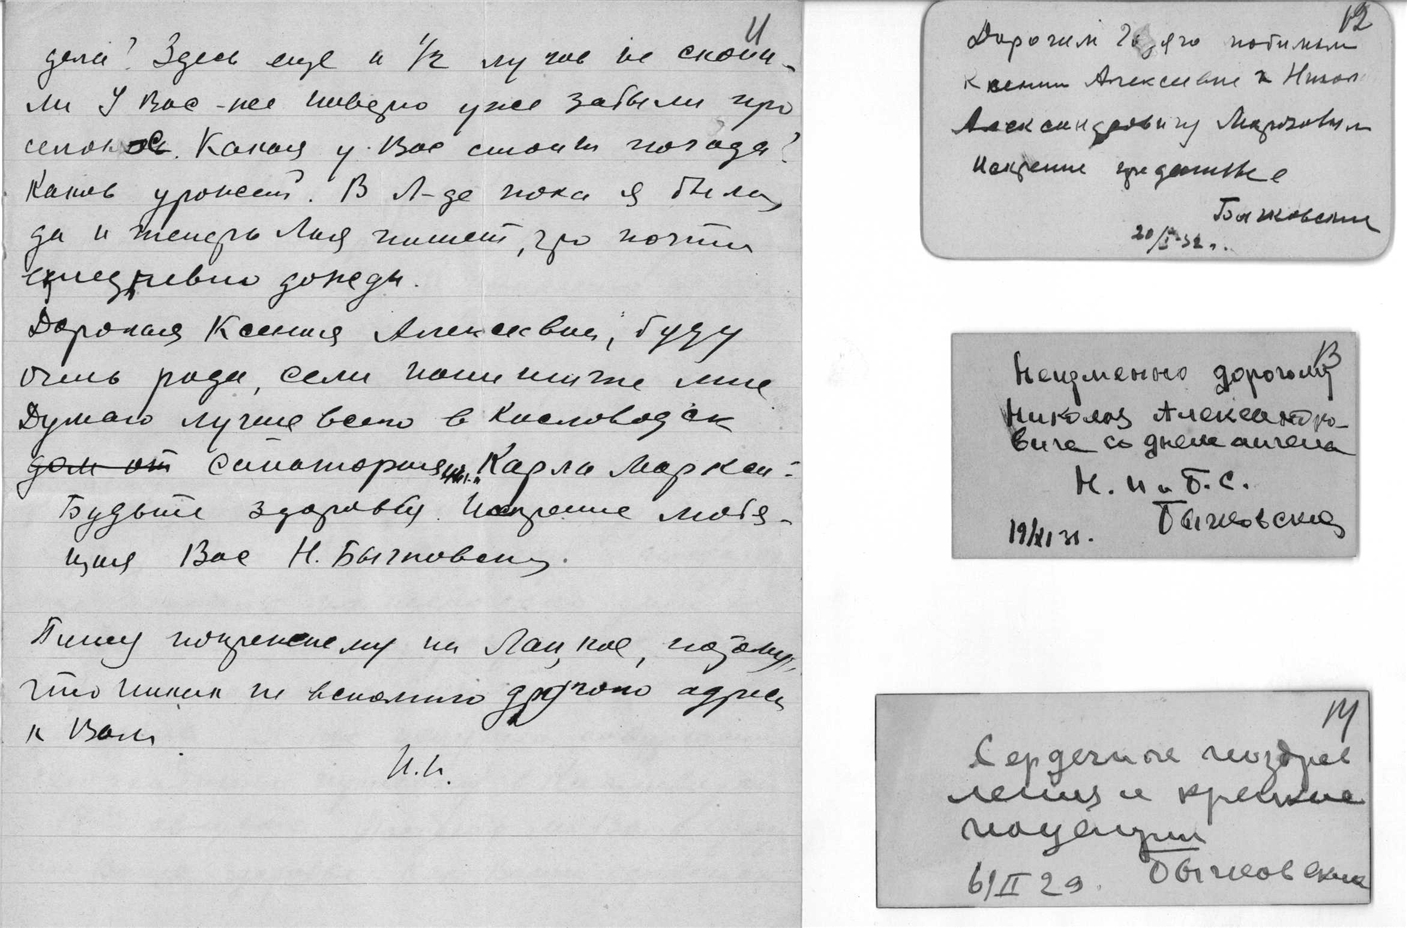 11
дела? Здесь еще и 1/2 лугов не скоси-
ли У Вас-же наверно уже забыли про
сенокос. Какая у Вас стоит погода?
Каков урожай? В Л-де пока я была,
да и теперь Ляля пишет, что почти
ежедневно дожди.
Дорогая Ксения Алексевна, буду
очень рада, если напишите мне
Думаю лучше всего в Кисловодск
Санатория им. Карла Маркса.
Будьте здоровы. Искренне любя-
щая Вас Н. Бычковская.
Пишу попрежнему на Лацкое, потому,
что никак не вспомню другого адреса
к Вам.
Н.Б.
12
Дорогим горячо любимым
Ксении Алексевне и Никол
Александровичу Морозовым
искренне преданные
Бычковские
20/I-32 г.
13
Неизменно дорогому
Николая Александро-
вича со днем ангела
Н. И и Б. С.
Бычковские
19/XII 31.
14
Сердечные поздрав
ления и крепкие
поцелуи
6/II 29. Бычковские